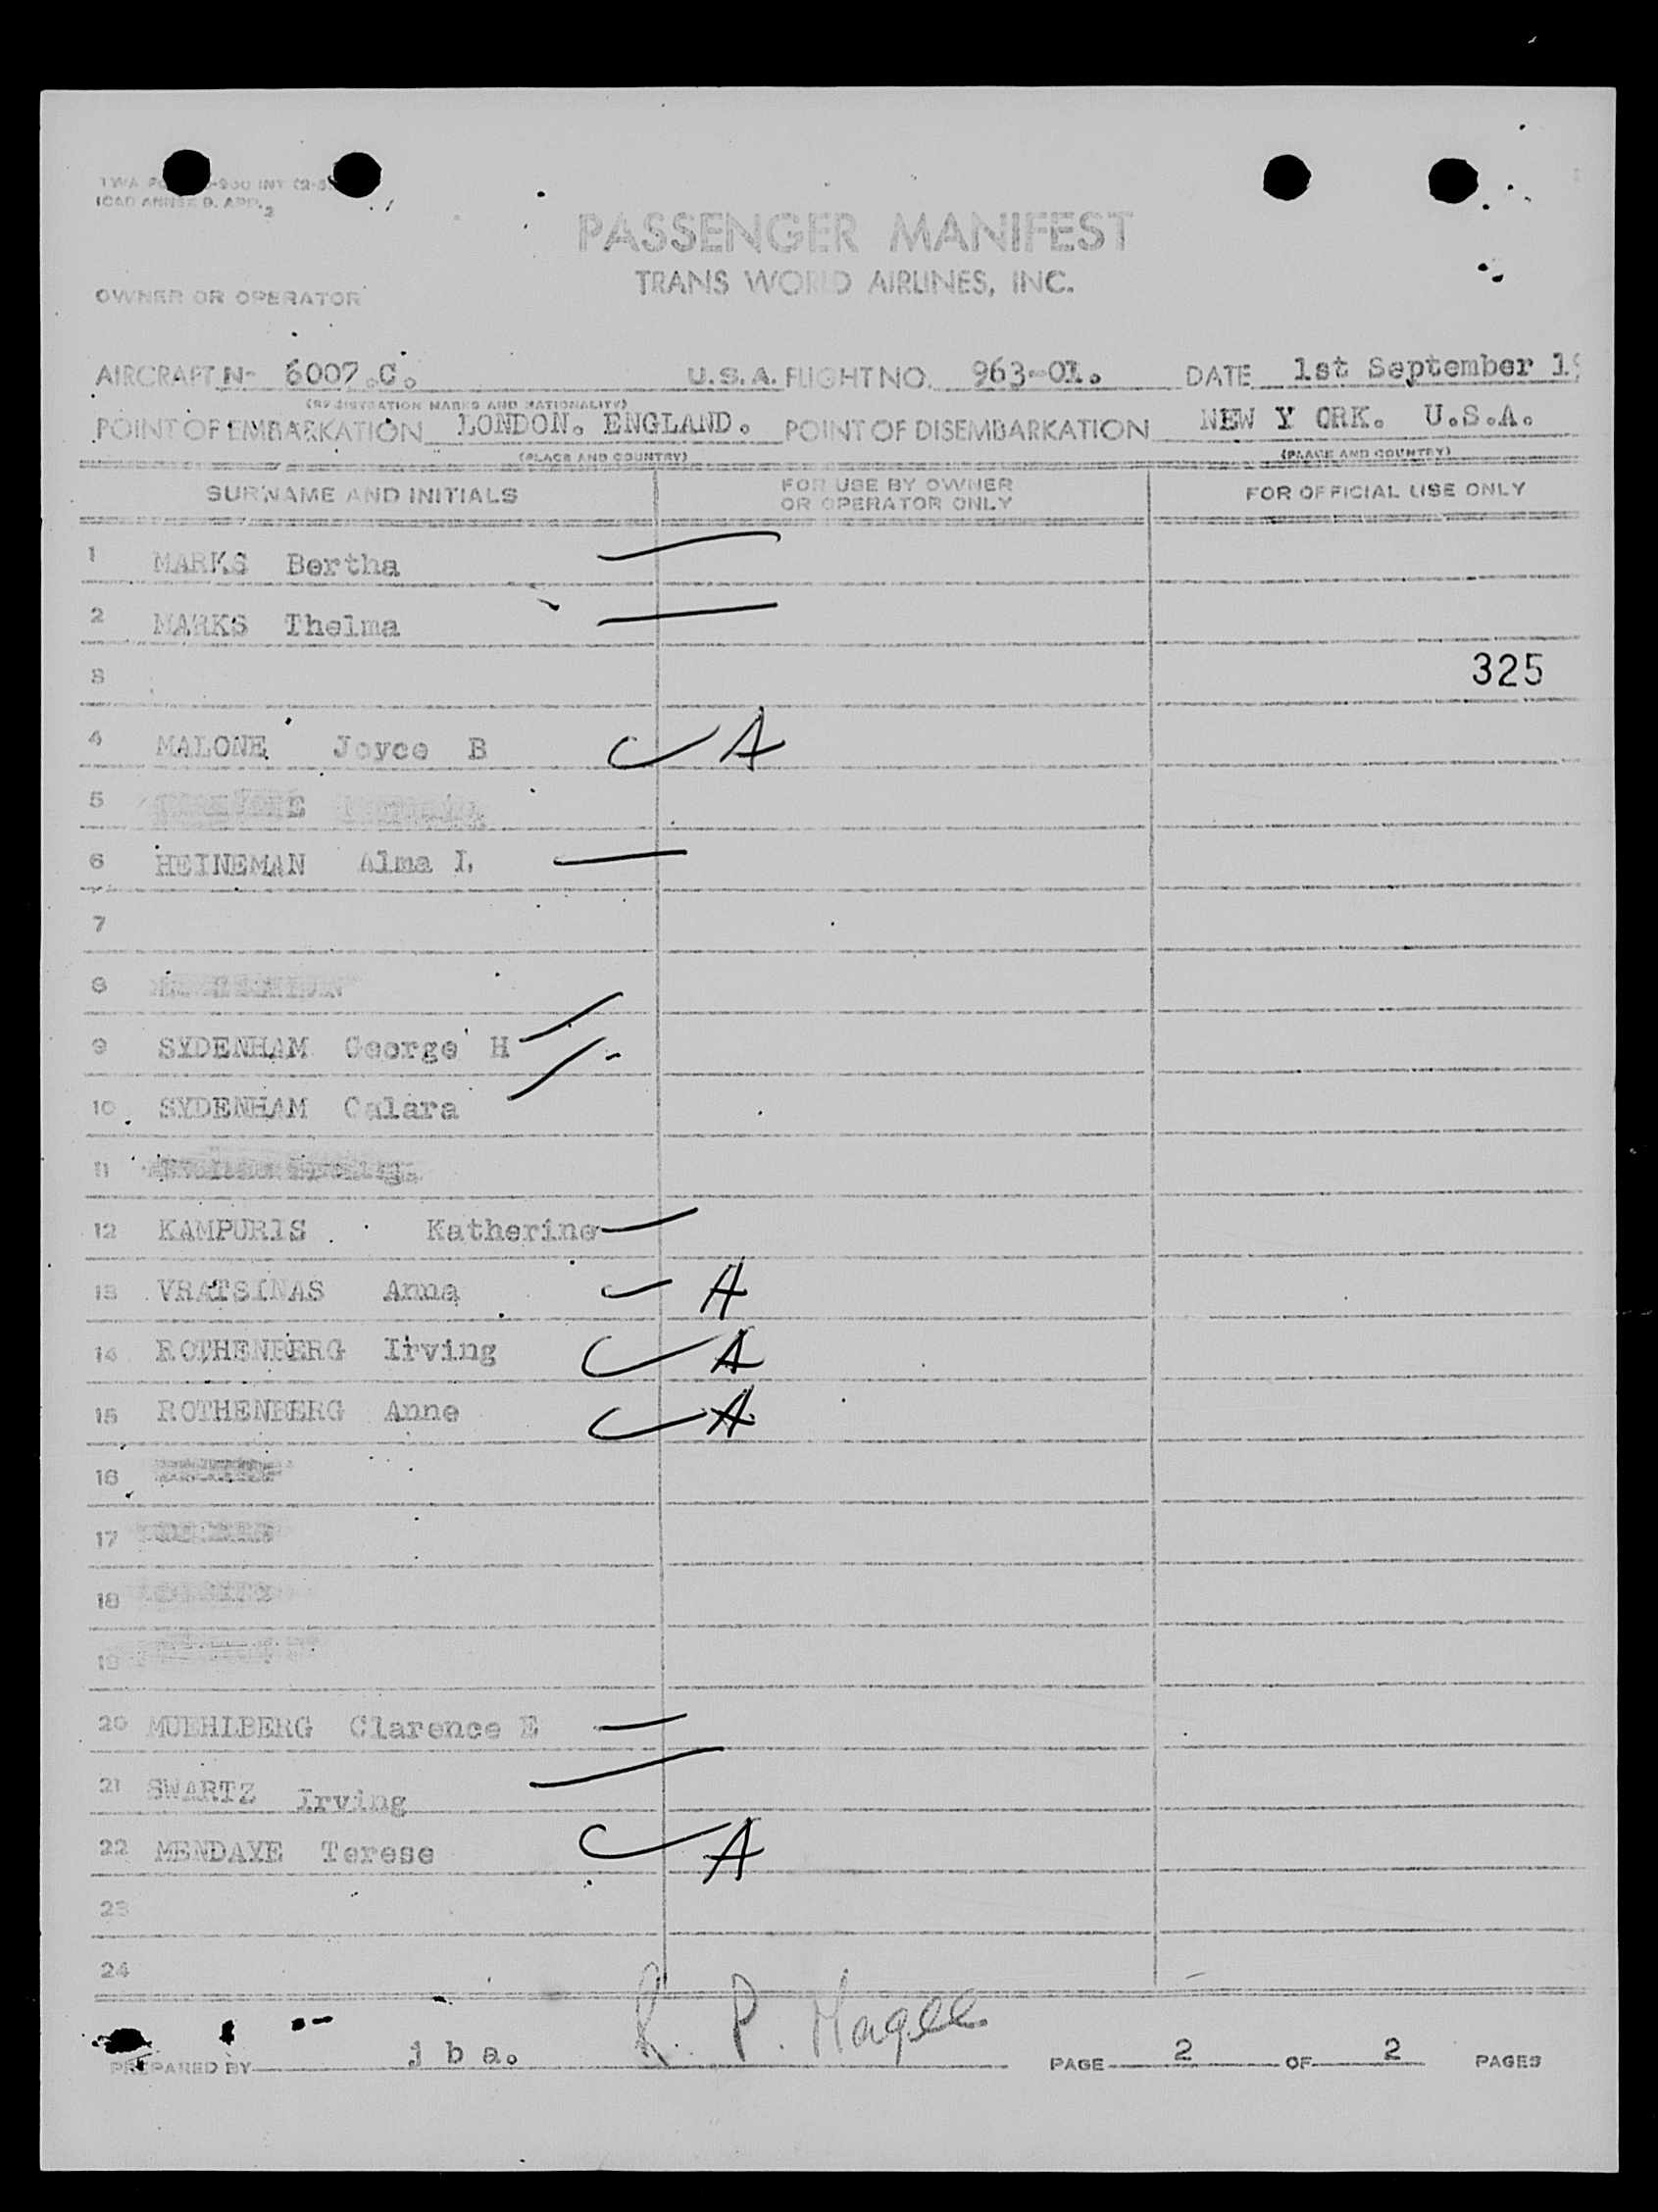 ICAO ANNEX 9. APP. 2
PASSENGER MANIFEST
TRANS WORLD AIRLINES, INC.
OWNER OR OPERATOR
AIRCRAFT N- 6007.C. U.S.A. FLIGHT NO. 963-01. DATE 1st September
(REGISTRATION MARKS AND NATIONALITY)
POINT OF EMBARKATION LONDON. ENGLAND. POINT OF DISEMBARKATION NEW Y ORK. U.S.A.
(PLACE AND COUNTRY) (PLACE AND COUNTRY)
SURNAME AND INITIALS FOR USE BY OWNER OR OPERATOR ONLY FOR OFFICIAL USE ONLY
1 MARKS Bertha
2 MARKS Thelma
3 325
4 MALONE Joyce B A
5
6 HEINEMAN Alma I.
7
8
9 SYDENHAM George H
10 SYDENHAM Calara
11
12 KAMPURIS Katherine
13 VRATSINAS Anna A
14 ROTHENBERG Irving A
15 ROTHENBERG Anne A
16
17
18
19
20 MUEHLBERG Clarence E
21 SWARTZ Irving
22 MENDAYE Terese A
23
24
PREPARED BY j b a. R. P. Magee PAGE 2 OF 2 PAGES